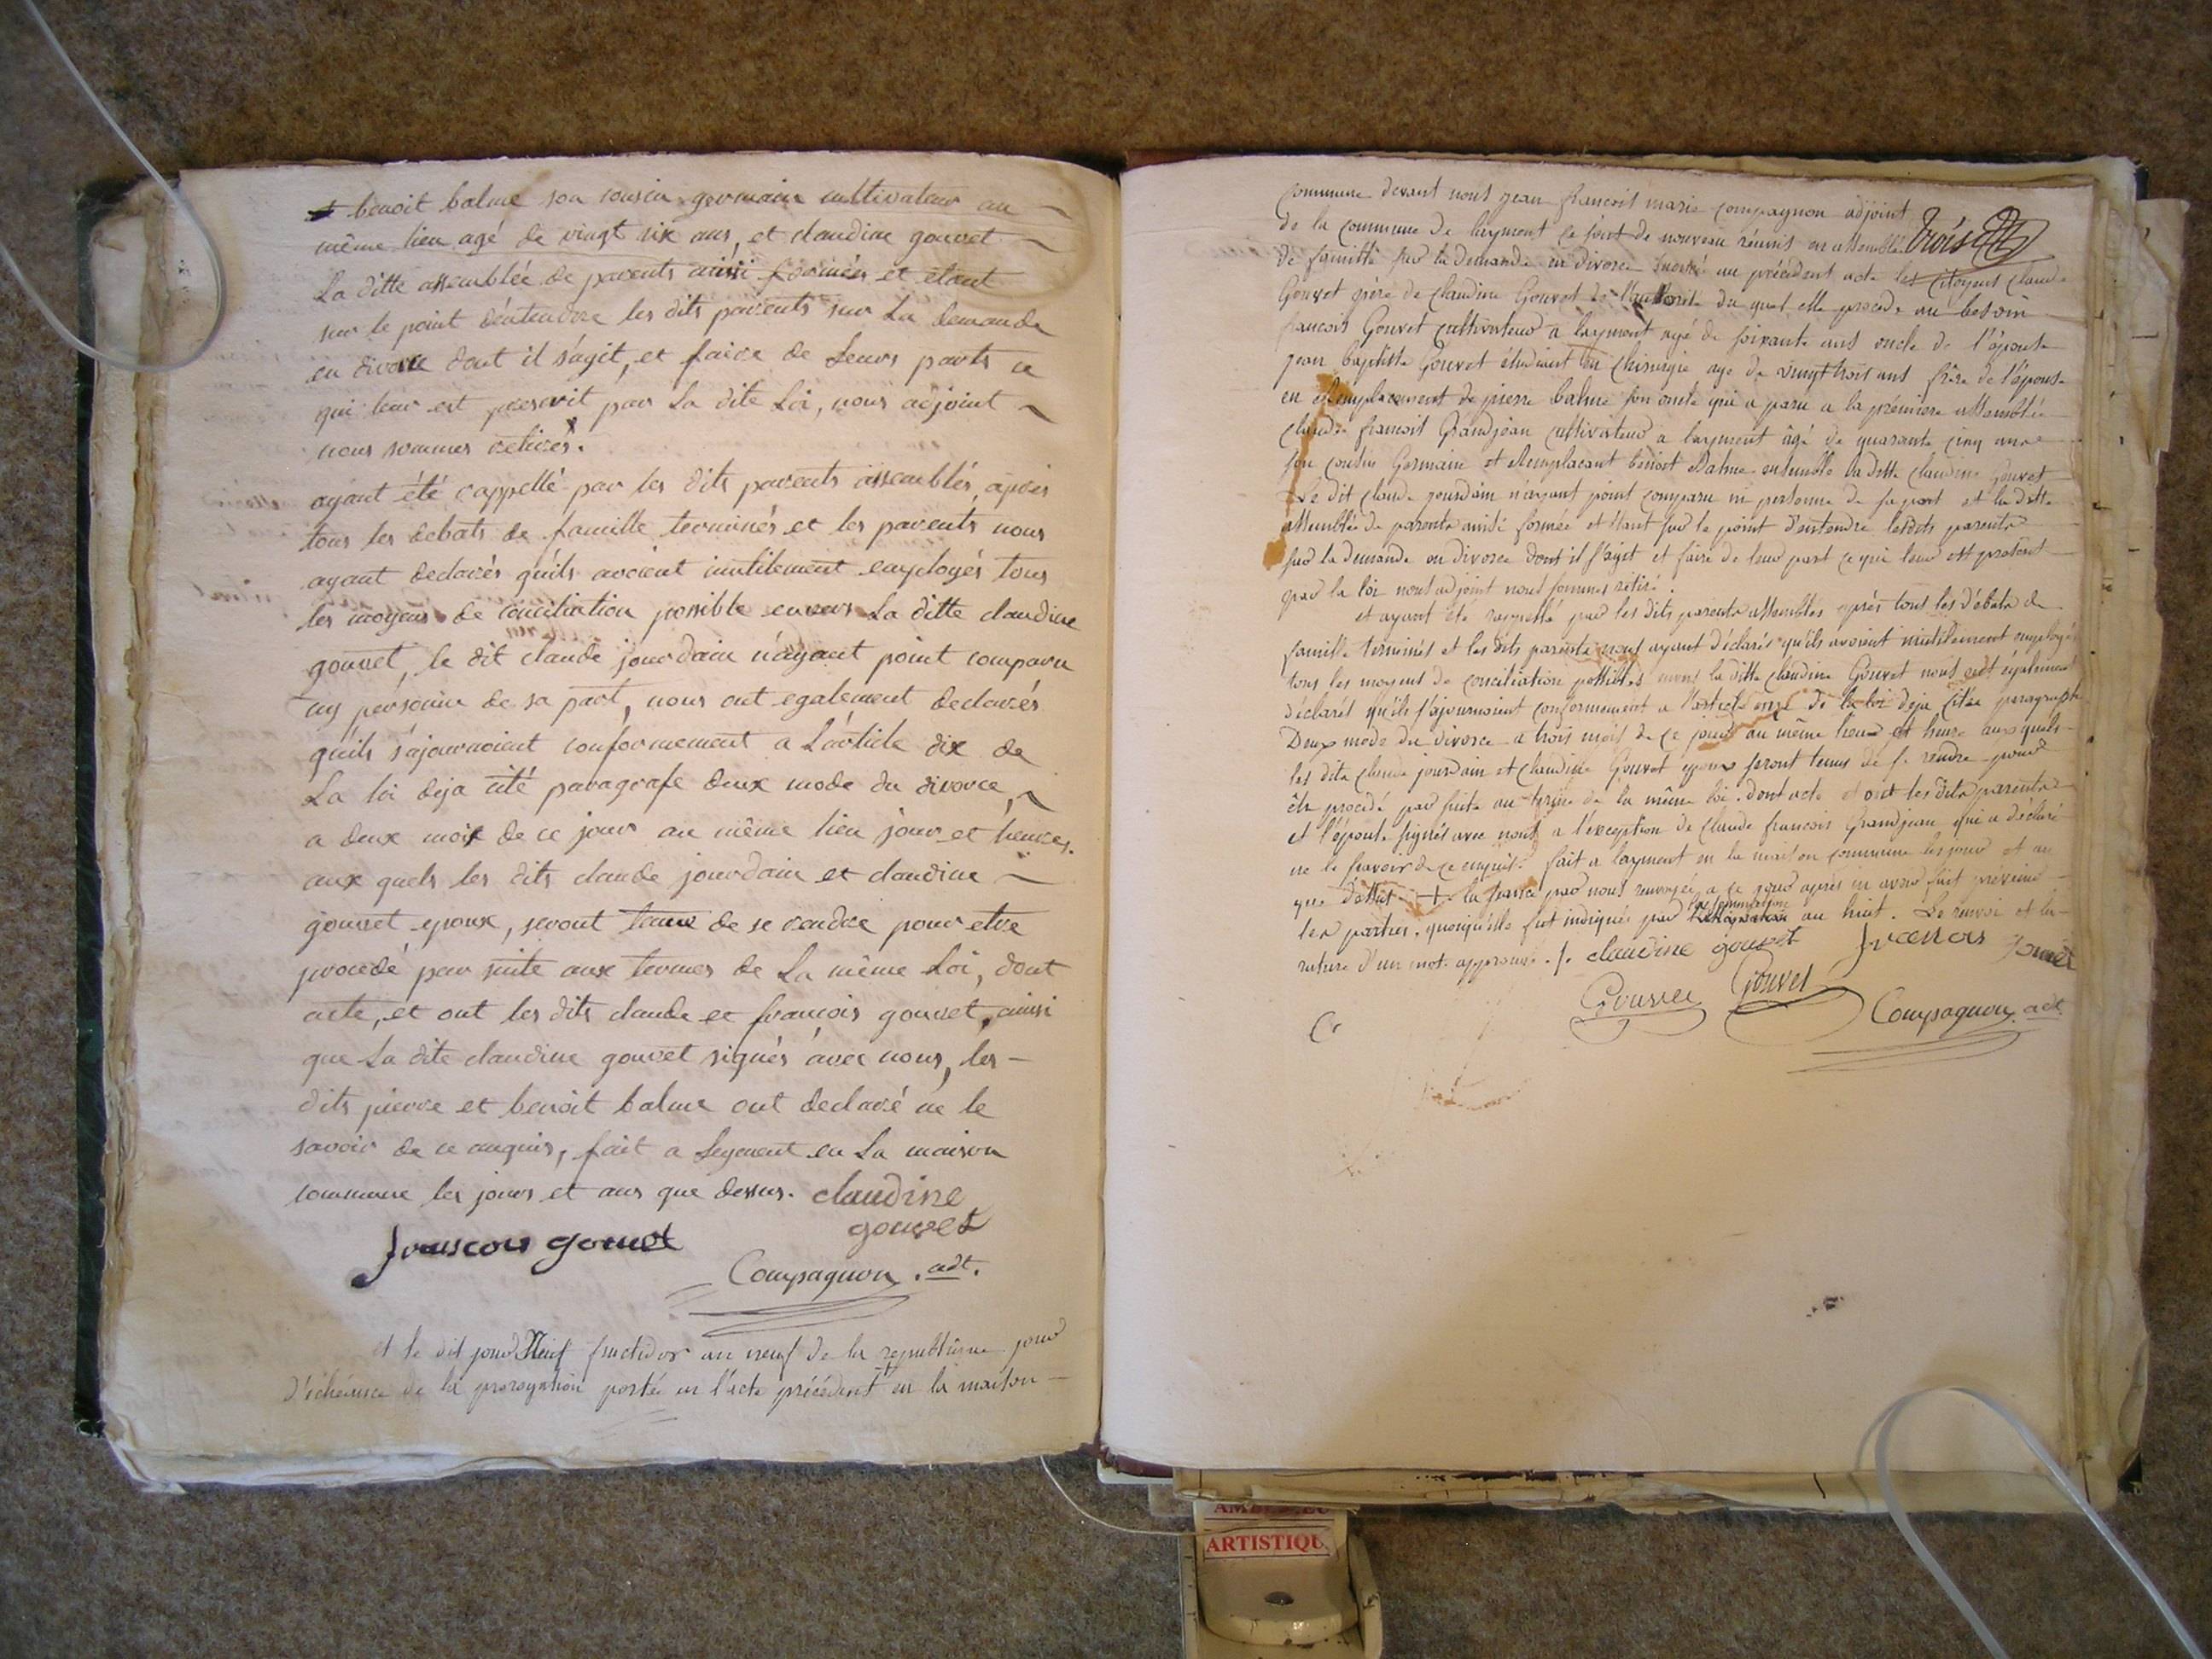 benoit balme son cousin germain cultivateur au
même lieu agé de vingt six ans, et claudine gouvet
La ditte assemblée de parents ainsi formées et etant
sur le point d'entendre les dits parents sur La demande
en divorce dont il s'agit, et faire de Leurs parts ce
qui leur est prescrit par La dite Loi, nous adjoint
nous sommes retirés.
ayant été rappellé par les dits parents assemblés, après
tous les debats de famille terminés et les parents nous
ayant declarés qu'ils avoient inutilement employés tous
les moyens de conciliation possible envers La ditte claudine
gouvet, le dit claude jourdain n'ayant point comparu
ny personne de sa part, nous ont egalement declarés
qu'ils s'ajournoient conformement a L'article dix de
La loi deja cité paragrafe deux mode du divorce,
a deux mois de ce jour au même lieu jour et heures.
aux quels les dits claude jourdain et claudine
gouvet epoux, seront tenus de se rendre pour etre
procedé par suite aux termes de La même Loi, dont
acte, et ont les dits claude et françois gouvet, ainsi
que La dite claudine gouvet signés avec nous, les
dits pierre et benoit balme ont declaré ne le
savoir de ce enquis, fait a Leyment en La maison
commune les jours et ans que dessus. claudine
gouvet
francois gouvet
Compagnon. adt.
et le dit jour Neuf fructidor an neuf de la republique jour
d'échéance de la prorogation portée en l'acte précédent en la maison
commune devant nous jean francois marie compagnon adjoint
de la commune de layment se sont de nouveau réunis en assemblée
trois
de famille sur la demande en divorce énoncé au précédent acte les Citoyens Claude
Gouvet père de Claudine Gouvet de l'authorité du quel elle procede au besoin
francois Gouvet cultivateur a layment agé de soixante ans oncle de l'épouse
jean baptiste Gouvet étudiant en chirurgie agé de vingt trois ans frère de l'épouse
en Remplacement de pierre balme son oncle qui a paru a la première assemblée
Claude francois Grandjean cultivateur a layment âgé de quarante cinq ans
son cousin Germain et Remplacant benoit Balme ensemble la ditte claudine Gouvet
Le dit Claude jourdain n'ayant point comparu ni personne de sa part et la ditte
assemblée de parents ainsi formée et étant sur le point d'entendre lesdits parents
sur la demande en divorce dont il s'agit et faire de leur part ce qui leur est prescrit
par la loi nous adjoint nous sommes retiré.
et ayant été rappellé par les dits parents assemblés après tous les débats de
famille terminés et les dits parents nous ayant déclarés qu'ils avoient inutilement employé
tous les moyens de conciliation possibles envers la ditte claudine Gouvet nous ont également
déclarés qu'ils s'ajournoient conformement a l'article onze de la loi deja citée paragraphe
Deux mode du divorce a trois mois de ce jour au même lieu et heure aux quels
les dits claude jourdain et Claudine Gouvet epoux seront tenus de se rendre pour
être procedé par suite au terme de la même loi. dont acte et ont les dits parents
et l'épouse signés avec nous a l'exception de Claude francois Grandjean qui a déclaré
ne le savoir de ce enquis. fait a layment en la maison commune les jour et an
que dessus + la séance par nous renvoyée a ce jour après en avoir fait prévenir
les parties, quoiqu'elle fut indiquée par au huit. Le renvoi et la
rature d'un mot approuvé. claudine gouvet francois Gouvet
Gouvet Gouvet
Compagnon adt.
ARTISTIQU